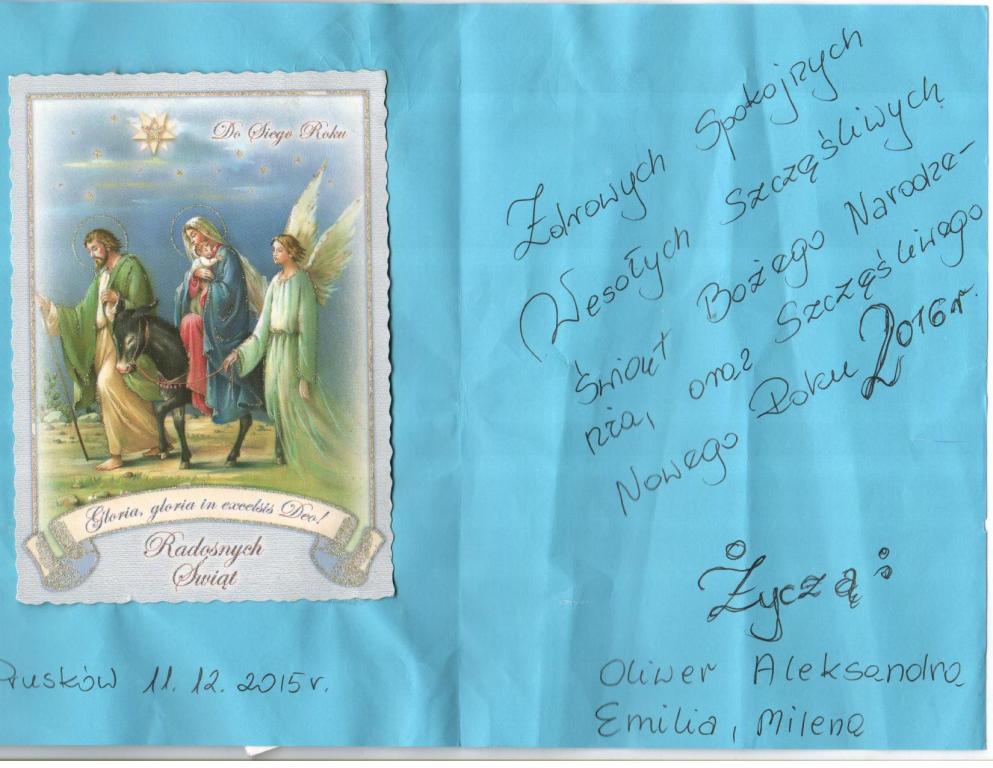 Do Siego Roku
Gloria, gloria in excelsis Deo!
Radosnych
Świąt
11.12.2015r.
Zdrowych Spokojnych
Wesołych Szczęśliwych
Świąt Bożego Narodze-
nia, oraz Szczęśliwego
Nowego Roku 2016r.
Życzą:
Oliwer Aleksandra
Emilia, Milena